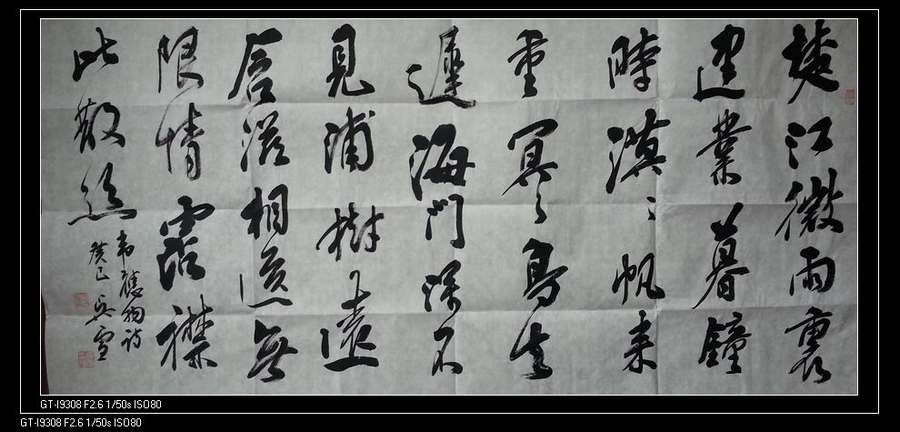 楚江微雨裏
建業暮鐘
時漠々帆来
重冥々鳥去
遲海門深不
見浦樹遠
含滋相送無
限情霑襟
比散絲
韋應物詩
癸巳 吳雪
GT-I9308 F2.6 1/50s ISO80
GT-I9308 F2.6 1/50s ISO80